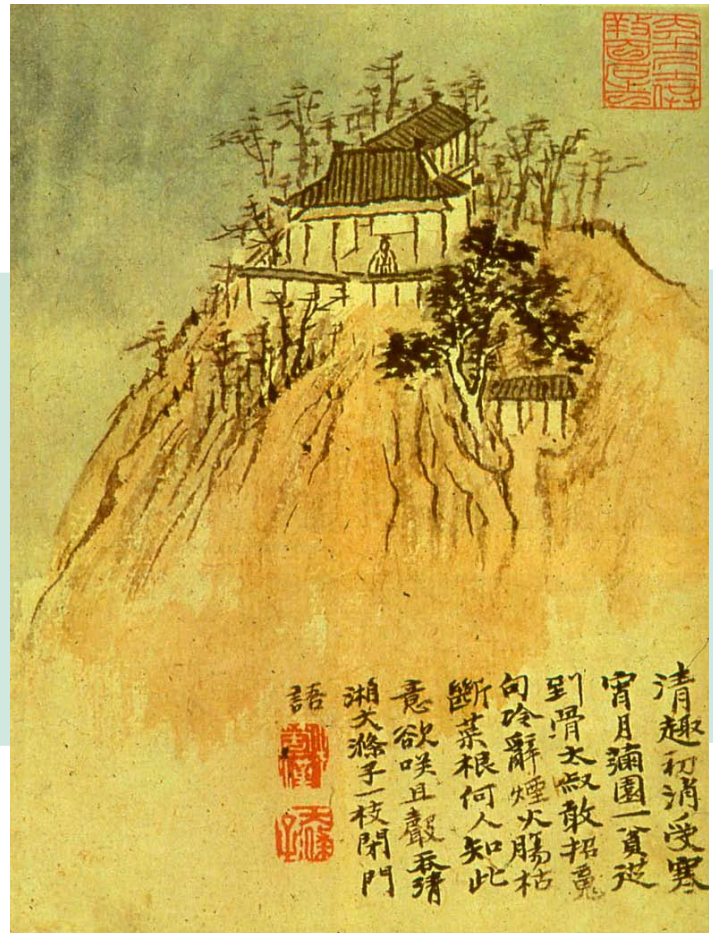 清趣初消受寒
宵月滿園一貧從
到骨太叔敢招魂
句冷辭煙火腸枯
斷菜根何人知此
意欲咲且聲吞清
湘大滌子一枝門
語